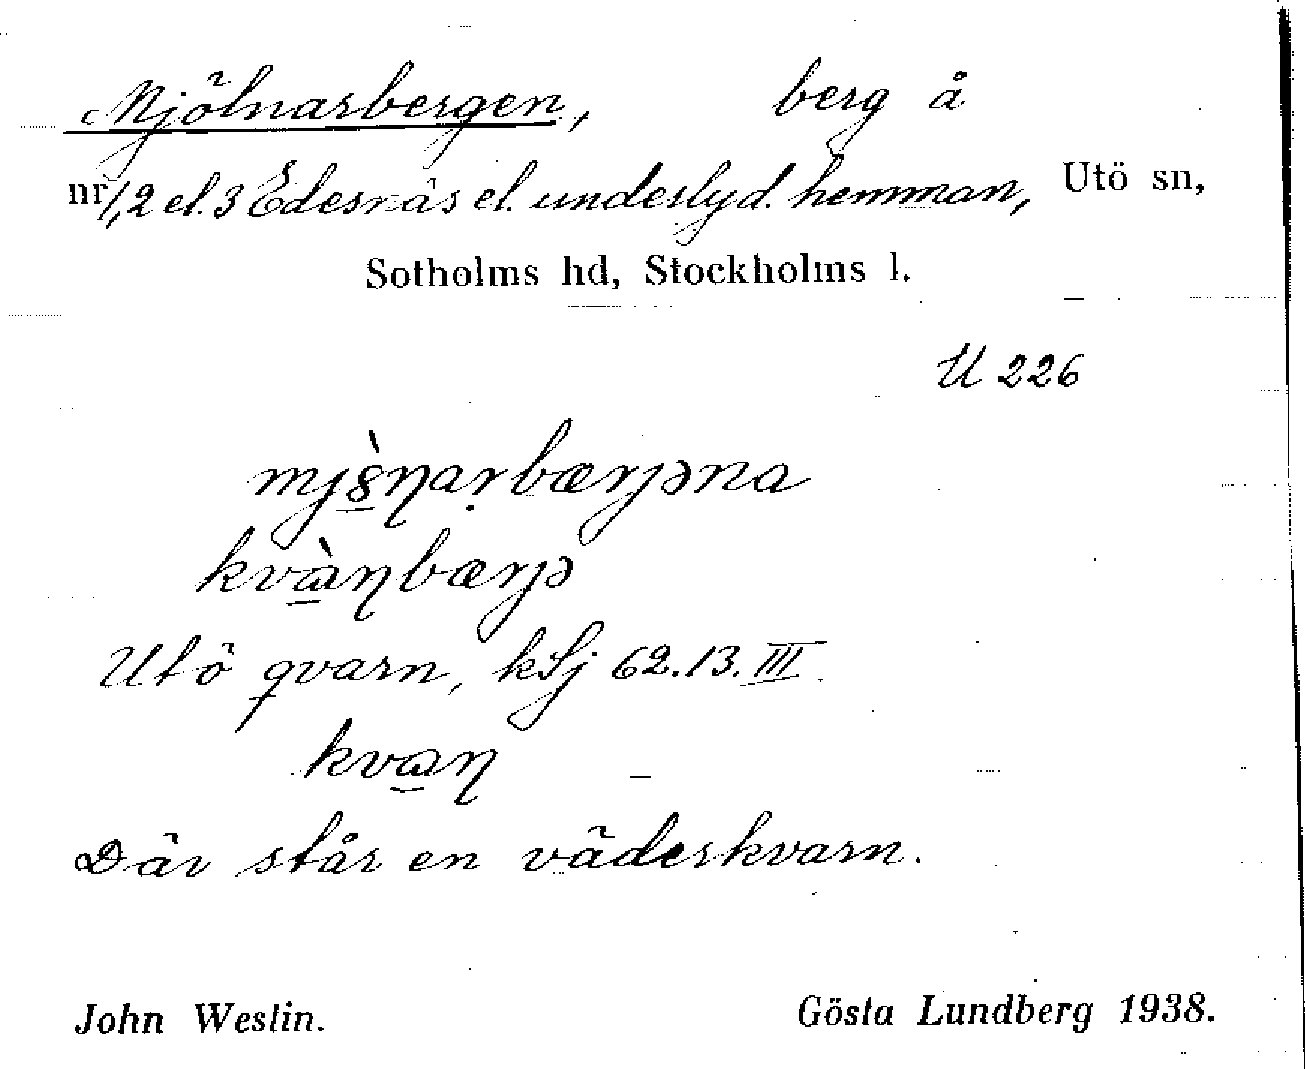 Mjölnarbergen, berg å
nr 1, 2 el. 3 Edesnäs el. underlyd. hemman, Utö sn,
Sotholms hd, Stockholms l.
U 226
kvàɳbærjə
Utö qvarn, kSj 62.13.III
kvaɳ
Där står en väderkvarn.
John Weslin. Gösta Lundberg 1938.